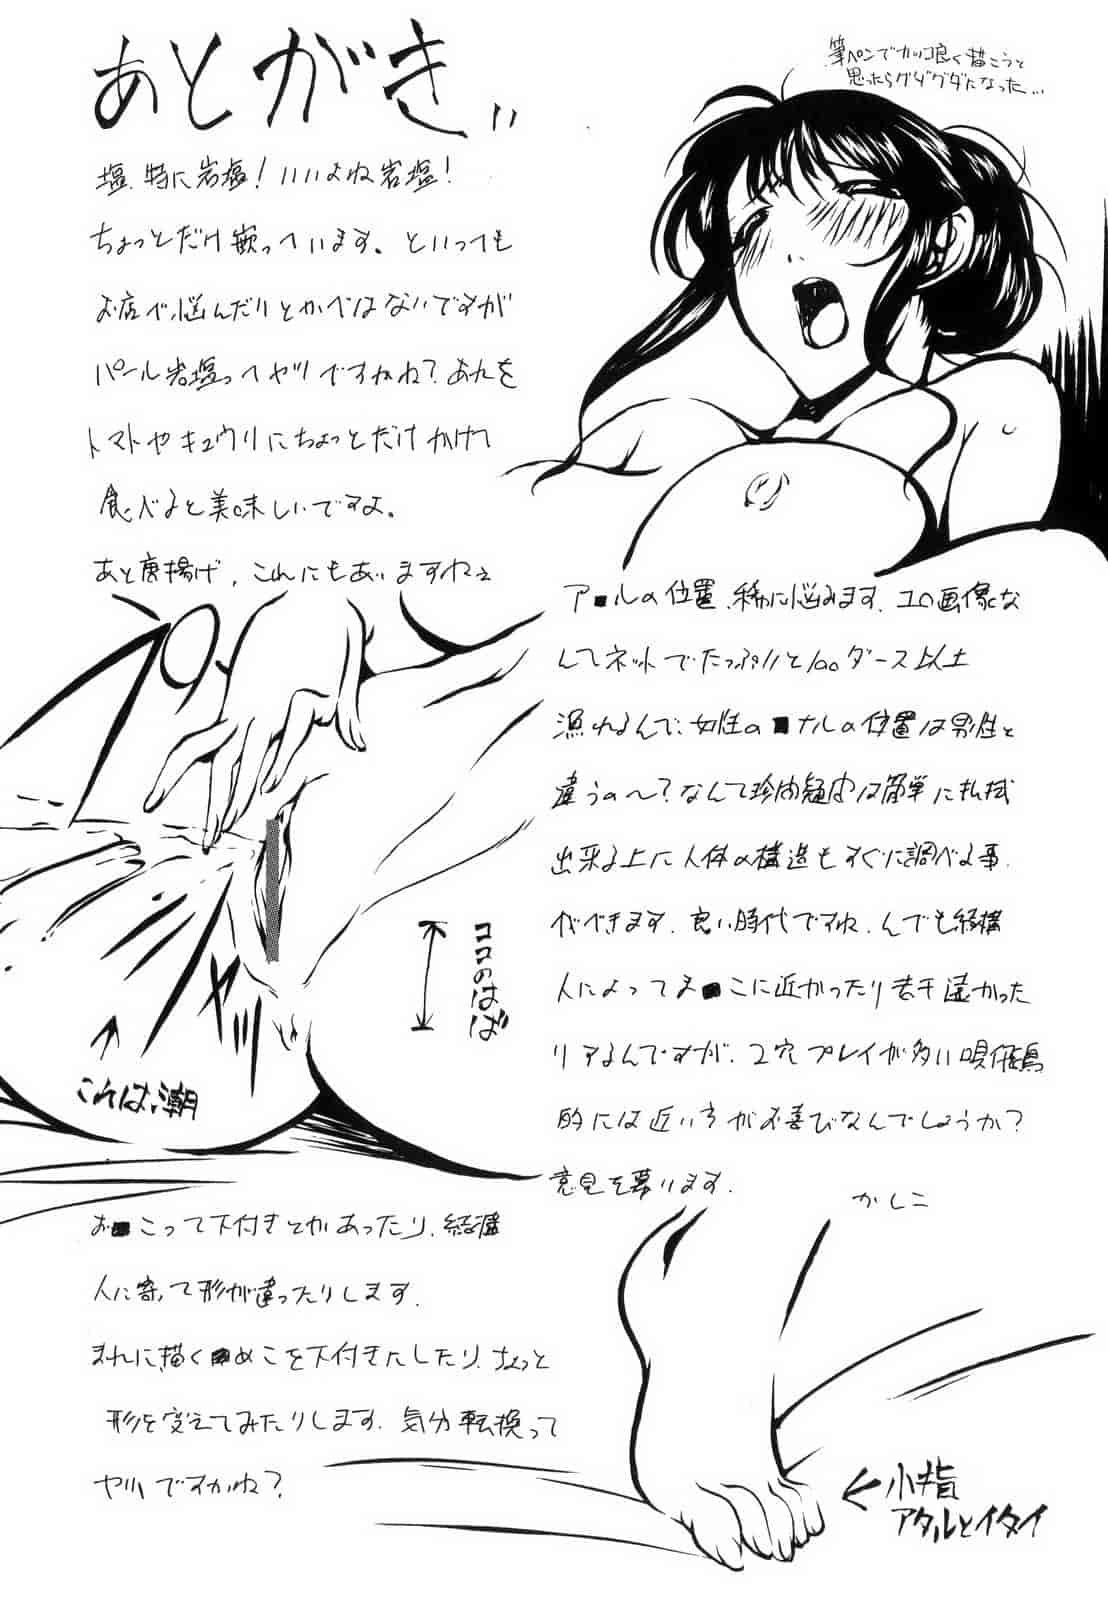 あとがき
筆ペンでカッコ良く描こうと
思ったらグダグダになった…
塩、特に岩塩!いいよね岩塩!
ちょっとだけ嵌っています。といっても
お店で悩んだりとかではないですが
パール岩塩ってヤツですかね?あれを
トマトやキュウリにちょっとだけかけて
食べると美味しいですよ。
あと唐揚げ、これにもあいますねぇ
ア■ルの位置、稀に悩みます、エロ画像な
んてネットでたっぷりと100ダース以上
漁れるんで、女性の■ナルの位置は男性と
違うの~?なんて珍内疑問は簡単に払拭
出来る上に人体の構造もすぐに調べる事
ができます、良い時代ですね、んでも結構
人によってま■こに近かったり若干遠かった
りするんですが、2穴プレイが多い唄飛鳥
的には近い方がお喜びなんでしょうか?
意見を募ります。
かしこ
ココのはば
ヤッ
これは、潮
お■こって下付きとかあったり、結構
人に寄って形が違ったりします。
まれに描く■めこを下付きにしたり、ちょっと
形を変えてみたりします、気分転換って
ヤツですかね?
小指
アタルとイタイ